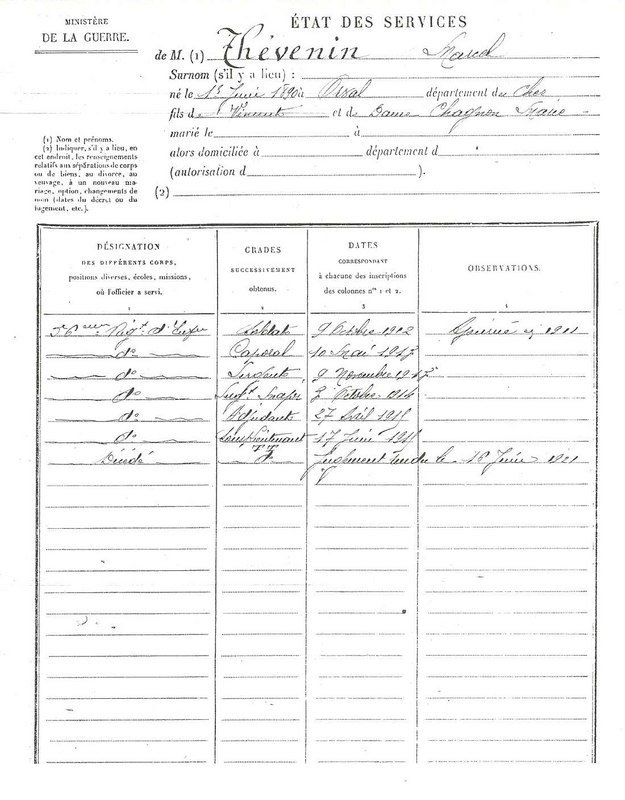 MINISTÈRE
DE LA GUERRE.
ÉTAT DES SERVICES
de M. (1) Thévenin Marcel
Surnom (s'il y a lieu) :
né le 1890 à Orval département du Cher
fils de Vincent et de Dame Chagnon Marie
marié le à
alors domiciliée à département d
(autorisation d ).
(2)
(1) Nom et prénoms.
(2) Indiquer, s'il y a lieu, en
cet endroit, les renseignements
relatifs aux séparations de corps
ou de biens, au divorce, au
veuvage, à un nouveau ma-
riage, option, changements de
nom (dates du décret ou du
jugement, etc.).
DÉSIGNATION
DES DIFFÉRENTS CORPS,
positions diverses, écoles, missions,
où l'officier a servi.
1
GRADES
SUCCESSIVEMENT
obtenus.
2
DATES
CORRESPONDANT
à chacune des inscriptions
des colonnes nos 1 et 2.
3
OBSERVATIONS.
4
Régt d'Infie Soldat 9 Octobre 1912 1911
do Caporal 10 Mai
do Sergent 9 Novembre
do Octobre 1914
do Adjudant 27 Avril
do Sous Lieutenant 17 Juin
Décédé Jugement rendu le Juin 1921